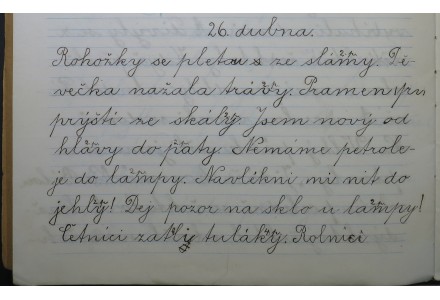 26. dubna.
Rohožky se pletou ze slámy. Dě-
večka nažala trávy. Pramen
prýští ze skály. Jsem nový od
hlavy do paty. Nemáme petrole-
je do lampy. Navlékni mi nit do
jehly! Dej pozor na sklo u lampy!
Četníci zatkli tuláky. Rolníci